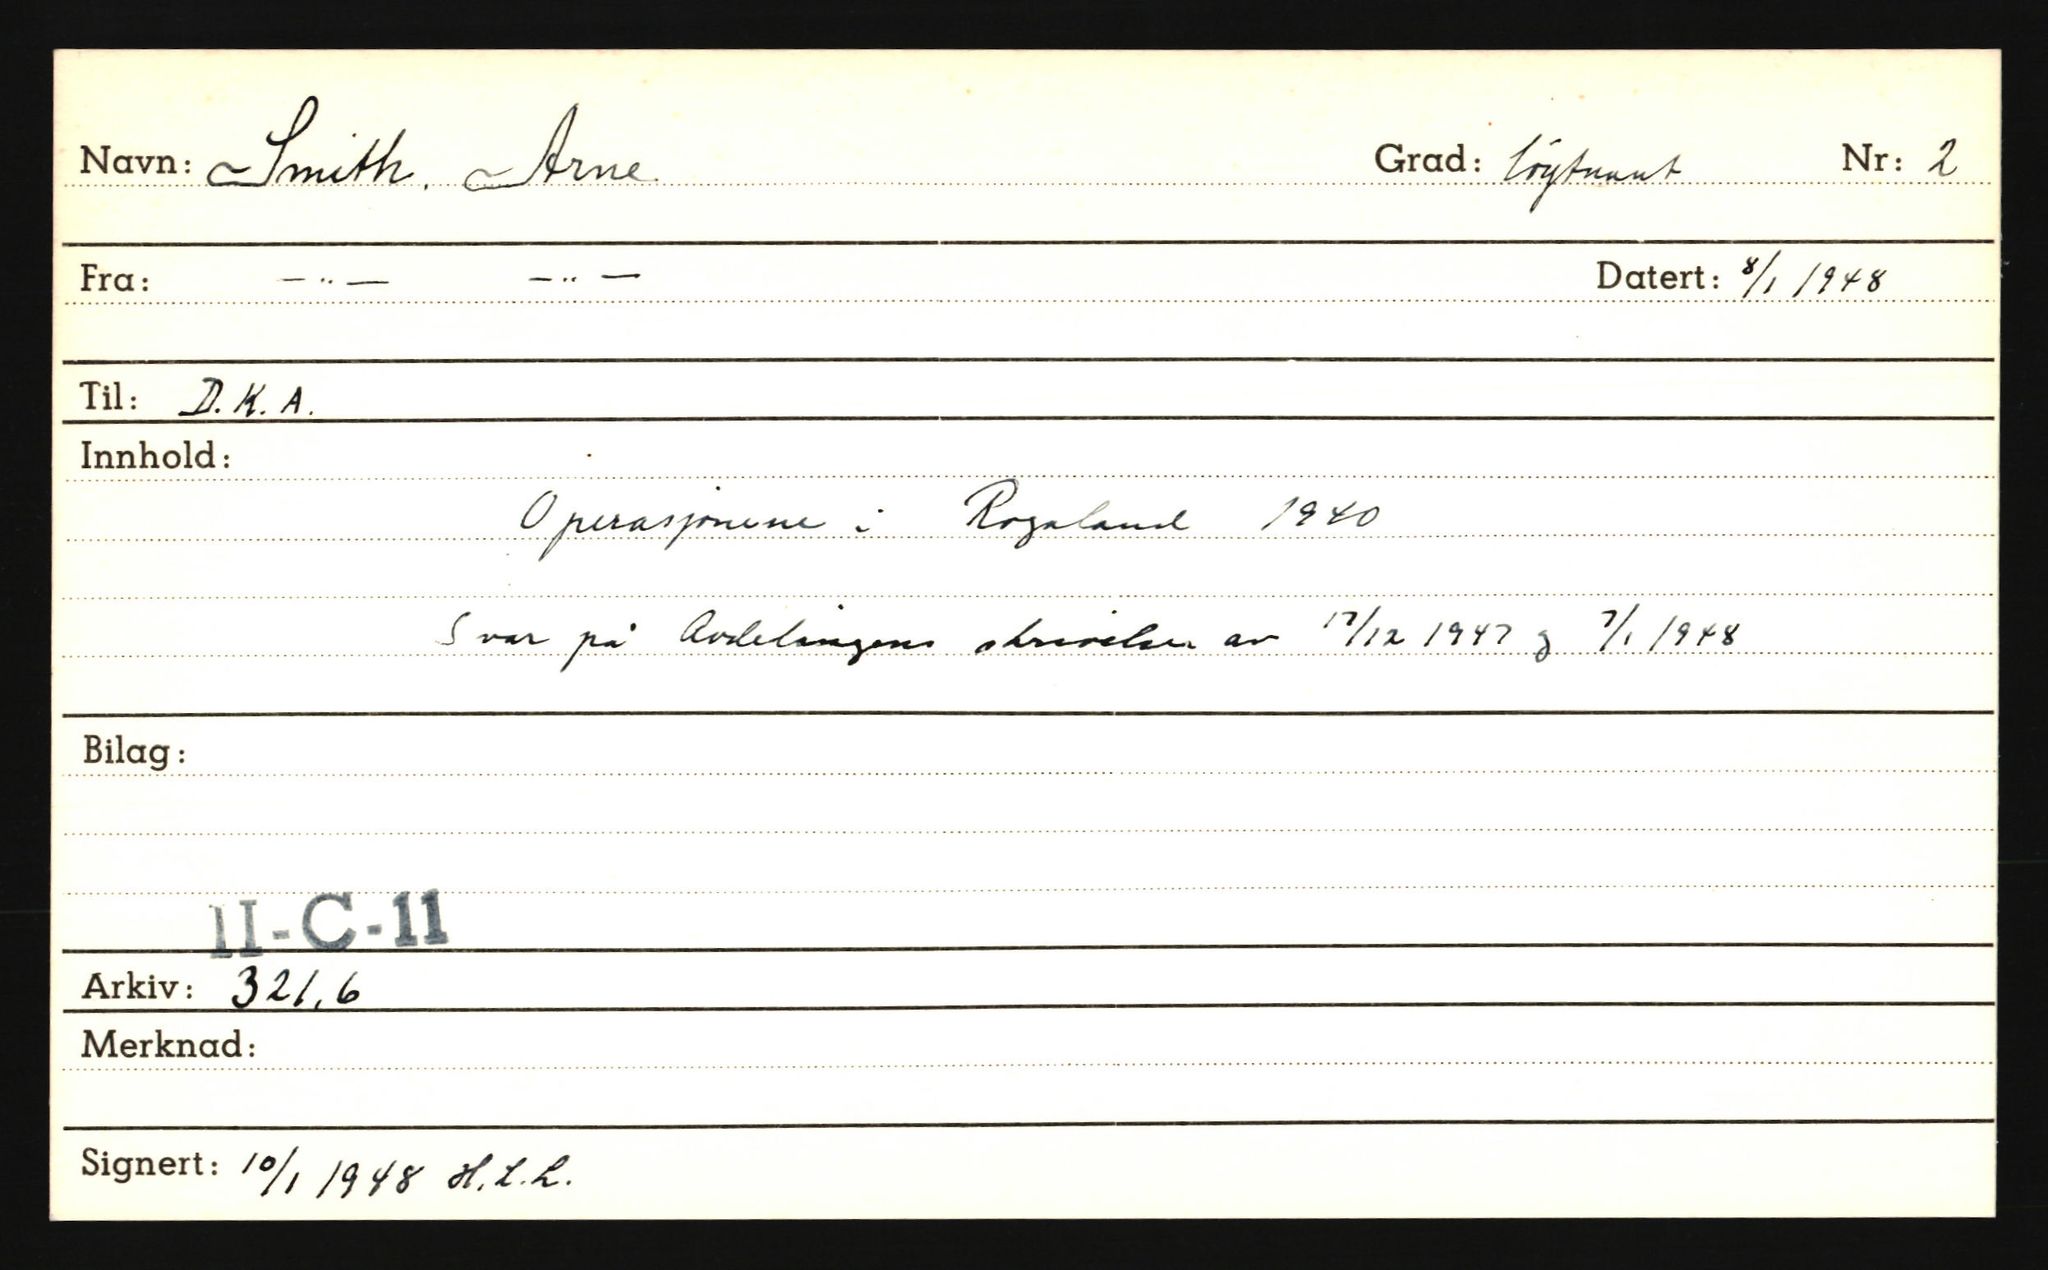 Navn: Smith, Arne Grad: löytnant Nr: 2
Fra: —〃— —〃— Datert: 8/1 1948
Til: D.K.A.
Innhold:
Operasjonene i Rogaland 1940
Svar på Avdelingens skrivelser av 17/12 1947 og 7/1 1948
Bilag:
II-C-11
Arkiv: 321.6
Merknad:
Signert: 10/1 1948 H.L.L.